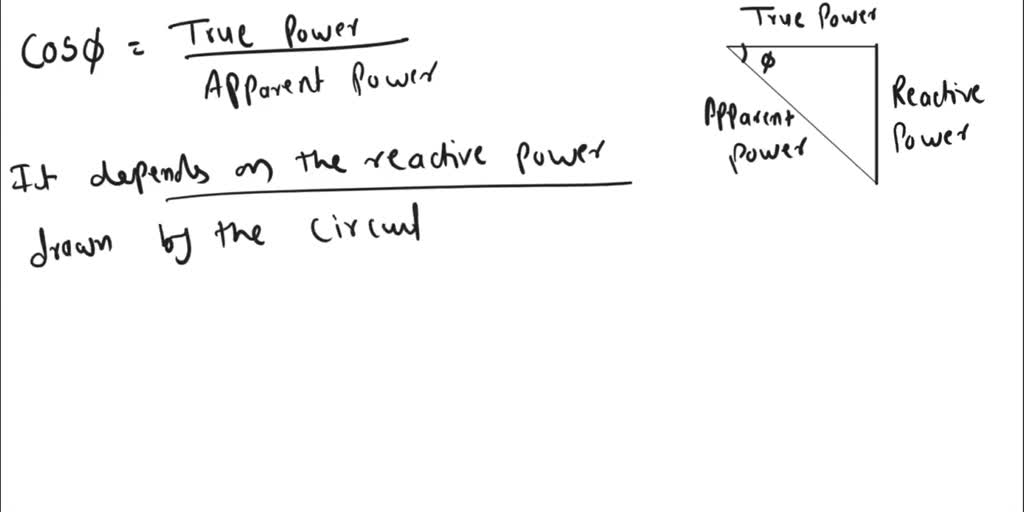 Cosφ = True Power
Apparent Power
It depends on the reactive power
drawn by the
True Power
φ
Apparent
power
Reactive
Power